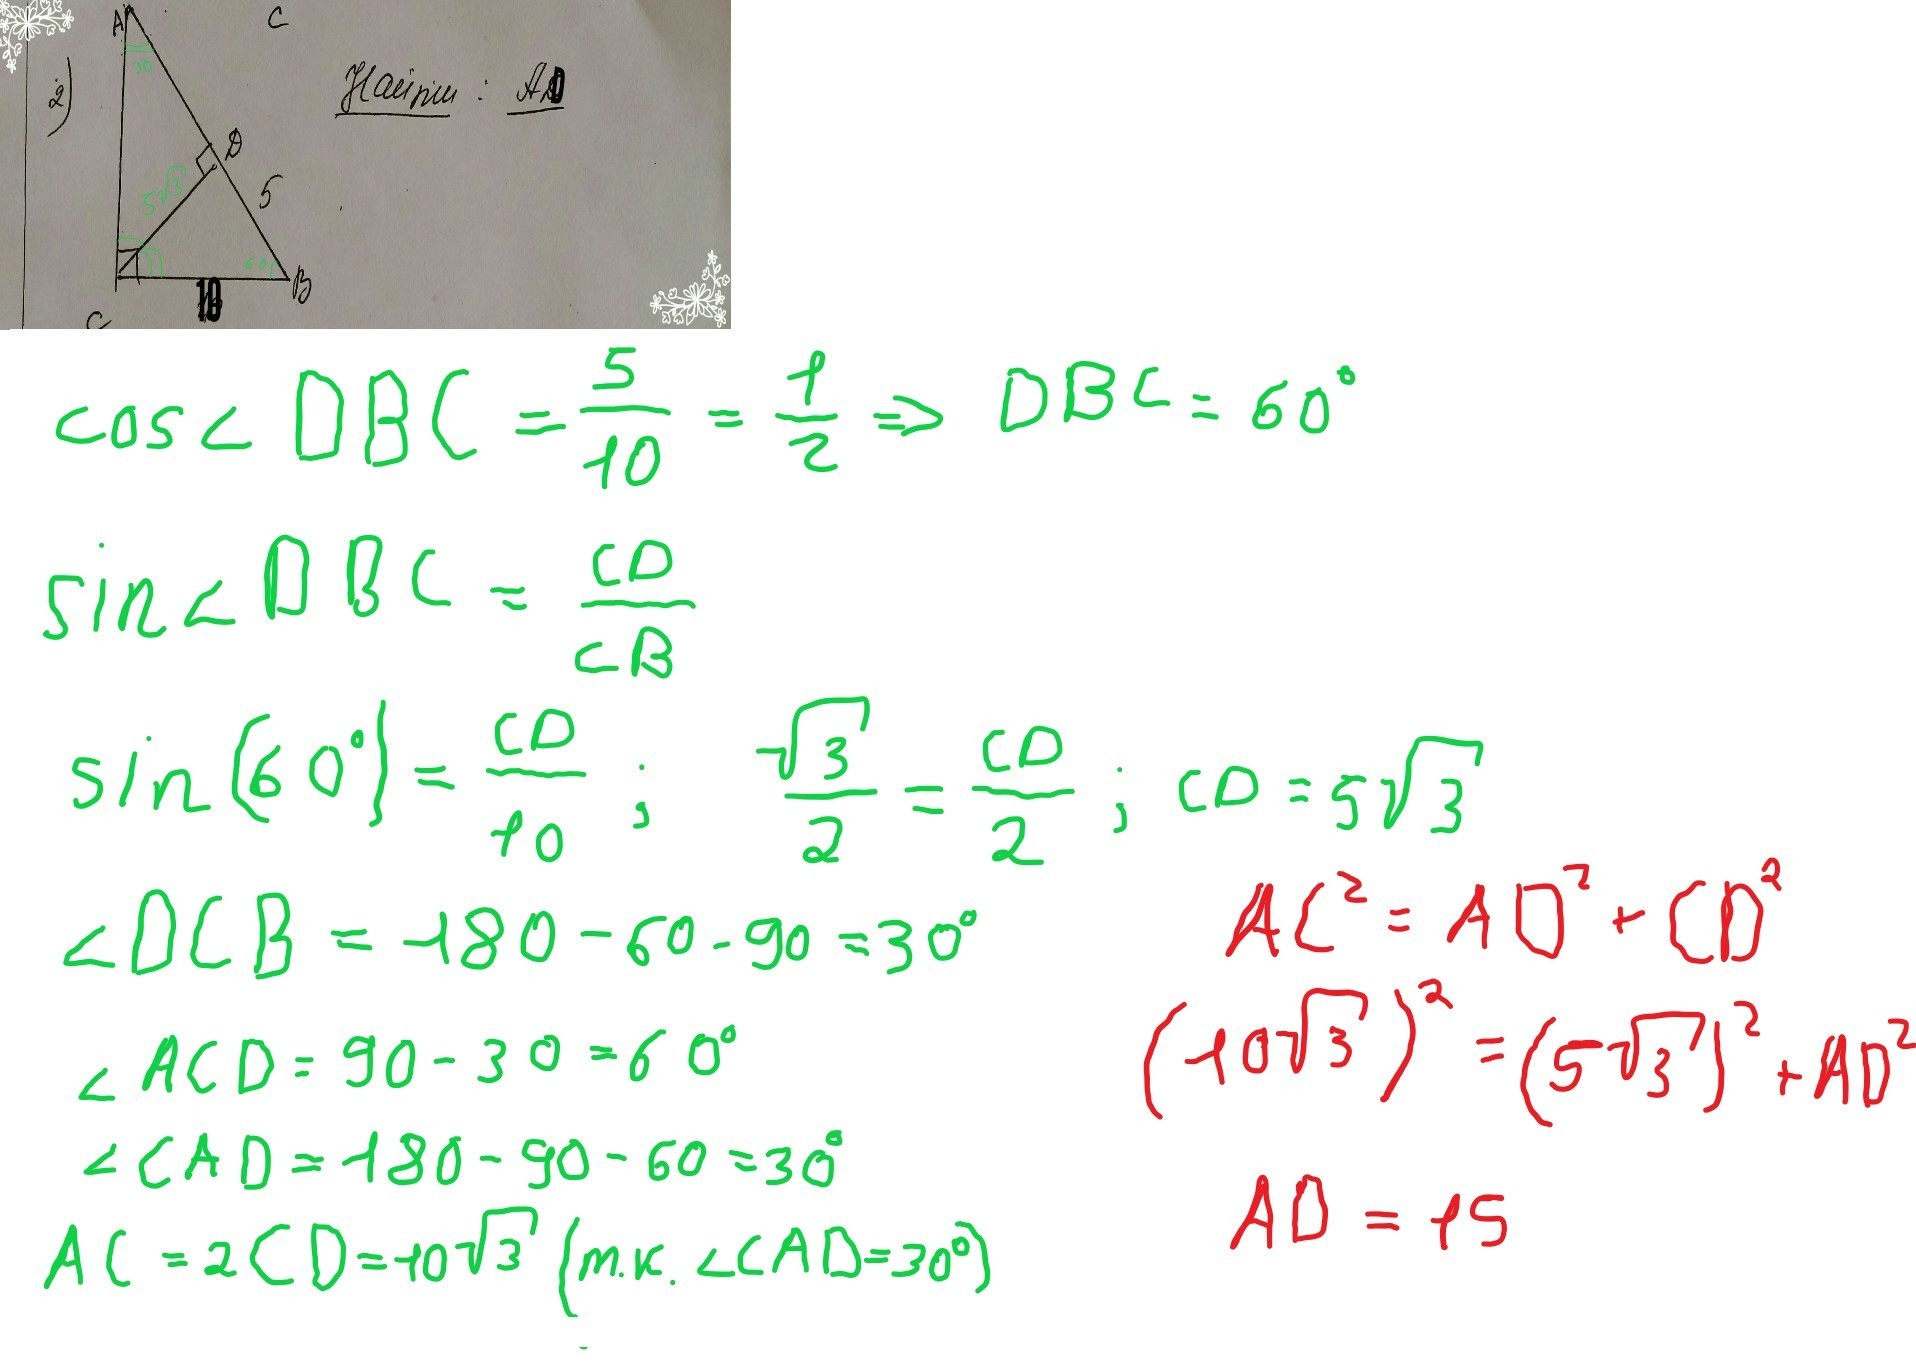 A
C
30
2)
Найти: AD
D
5√3
5
60
B
10
C
cos∠DBC = 5/10 = 1/2 => DBC = 60°
sin∠DBC = CD/CB
sin(60°) = CD/10 ; √3/2 = CD/2 ; CD = 5√3
∠DCB = 180 - 60 - 90 = 30°
∠ACD = 90 - 30 = 60°
∠CAD = 180 - 90 - 60 = 30°
AC = 2CD = 10√3 (т.к. ∠CAD = 30°)
AC² = AD² + CD²
(10√3)² = (5√3)² + AD²
AD = 15